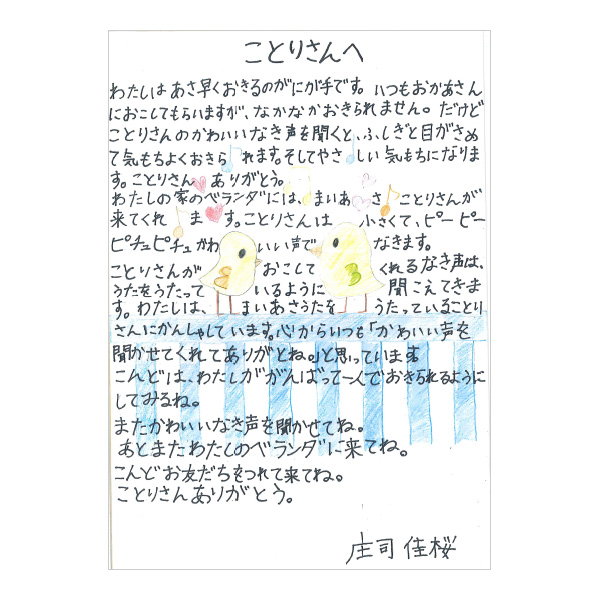 ことりさんへ
わたしは あさ早くおきるのがにが手です。 いつもおかあさん
におこしてもらいますが、なかなかおきられません。だけど
ことりさんのかわいいなき声を聞くと、ふしぎと目がさめ
て気もちよくおきら れます。そしてやさ しい 気もちになりま
す。ことりさん ありがとう。
わたしの家のベランダには、まいあ さ ことりさんが
来てくれ ま す。ことりさんは 小さくて、ピー ピー
ピチュピチュかわ いい声で なきます。
ことりさんが おこして くれるなき声は、
うたをうたって いるように 聞こえてきま
す。わたしは、 まいあさうたを うたっていることり
さんにかんしゃしています。心からいつも「かわいい声を
聞かせてくれてありがとね。」と思っています
こんどは、わたしががんばって一人でおきられるように
してみるね。
またかわいいなき声を聞かせてね。
あとまたわたしのベランダに来てね。
こんどお友だちをつれて来てね。
ことりさんありがとう。
庄司 佳桜